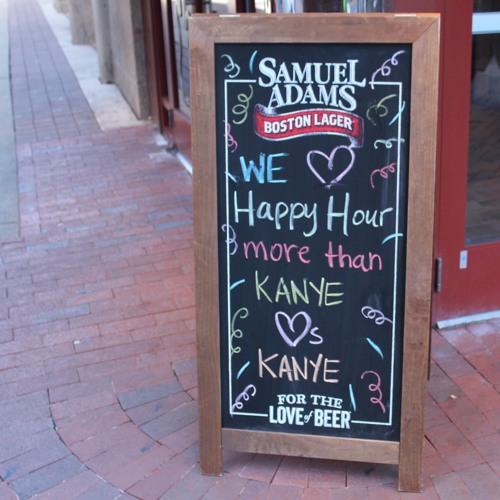 SAMUEL
ADAMS
BOSTON LAGER
WE ♡
Happy Hour
more than
KANYE
♡s
KANYE
FOR THE
LOVE of BEER